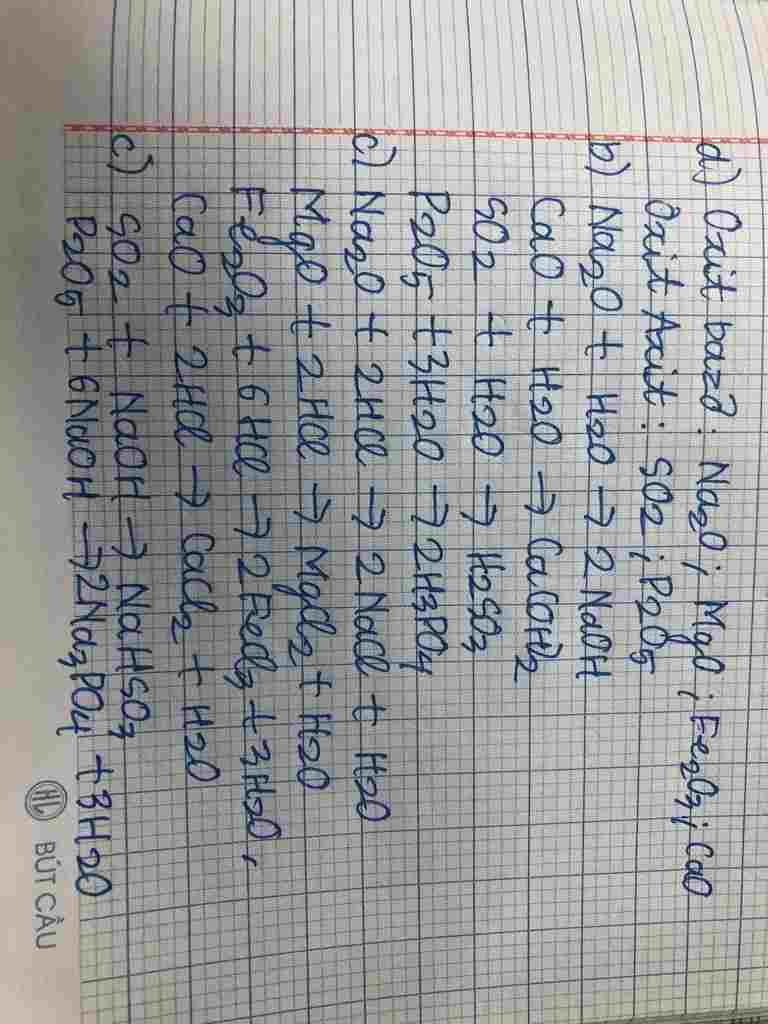 a) Oxit bazơ : Na2O ; MgO ; Fe2O3 ; CaO
Oxit Axit : SO2 ; P2O5
b) Na2O + H2O → 2 NaOH
CaO + H2O → Ca(OH)2
SO2 + H2O → H2SO3
P2O5 + 3H2O → 2H3PO4
c) Na2O + 2HCl → 2 NaCl + H2O
MgO + 2HCl → MgCl2 + H2O
Fe2O3 + 6 HCl → 2 FeCl3 + 3H2O,
CaO + 2HCl → CaCl2 + H2O
c) SO2 + NaOH → NaHSO3
P2O5 + 6NaOH → 2Na3PO4 + 3H2O
HL BÚT CẦU